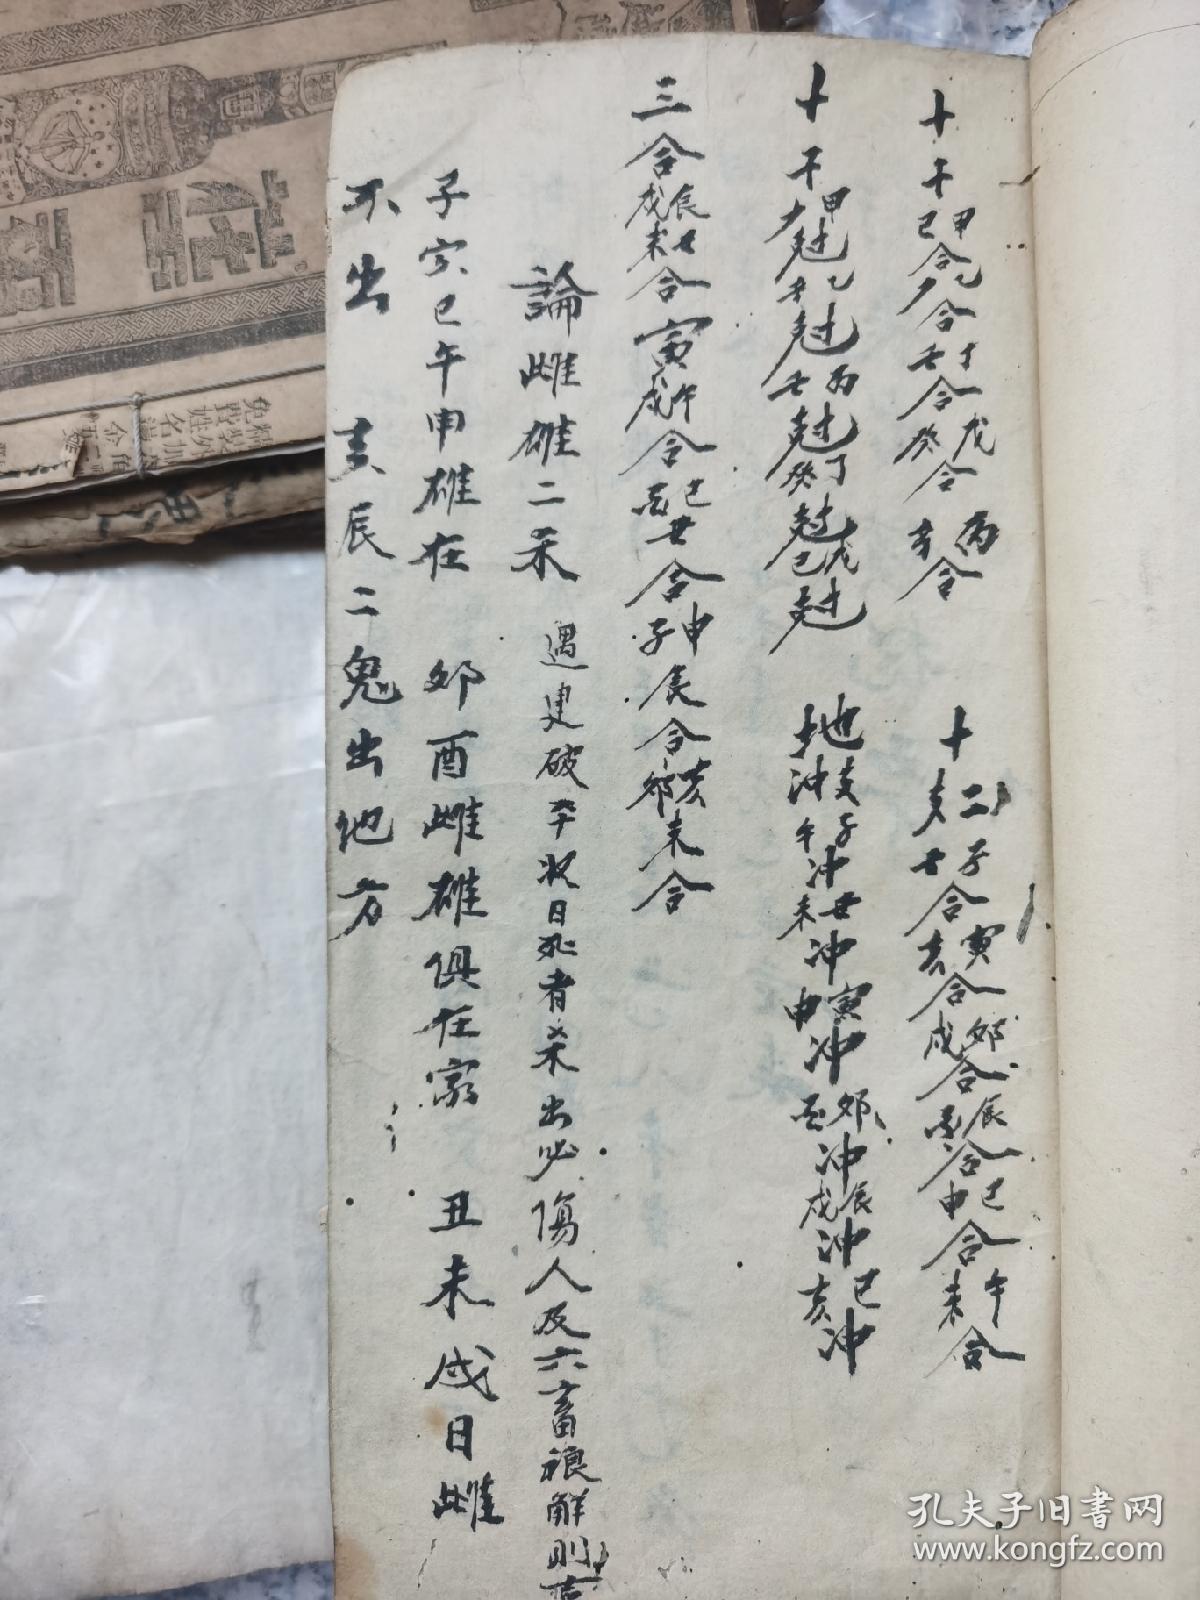 十干甲己合乙庚合丁壬合戊癸合丙辛合 十二支子丑合寅亥合卯戌合辰酉合巳申合午未合
十干甲庚尅乙辛尅丙壬尅丁癸尅戊己尅 地支冲子午冲丑未冲寅申冲卯酉冲辰戌冲巳亥冲
三合辰戌丑未合寅午戌合巳酉丑合申子辰合亥卯未合
論雌雄二杀 遇建破平收日死者杀出必傷人及六畜禳解則吉
子寅巳午申雄在 卯酉雌雄俱在家 丑未戌日雌
不出 亥辰二鬼出他方
孔夫子旧书网
www.kongfz.com